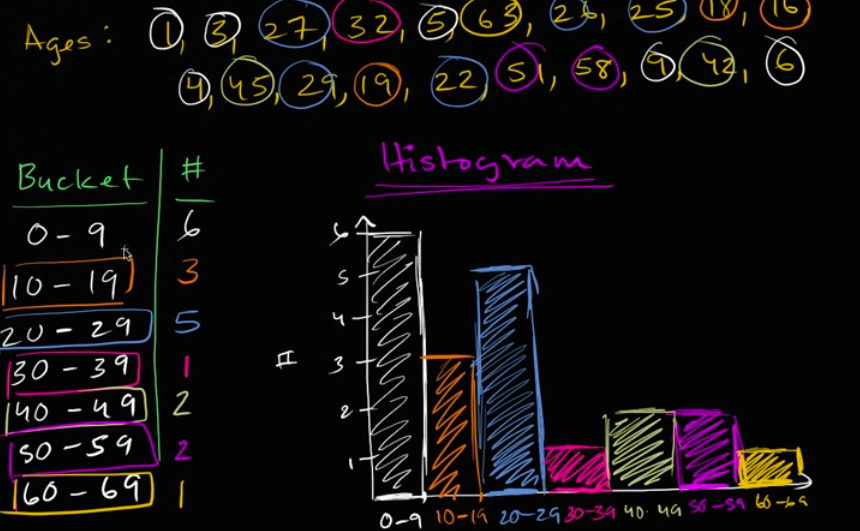 Ages: 1, 3, 27, 32, 5, 63, 26, 25, 18, 16
4, 45, 29, 19, 22, 51, 58, 9, 42, 6
Histogram
Bucket #
0-9 6
10-19 3
20-29 5
30-39 1
40-49 2
50-59 2
60-69 1
6
5
4
3
2
1
#
0-9 10-19 20-29 30-39 40-49 50-59 60-69